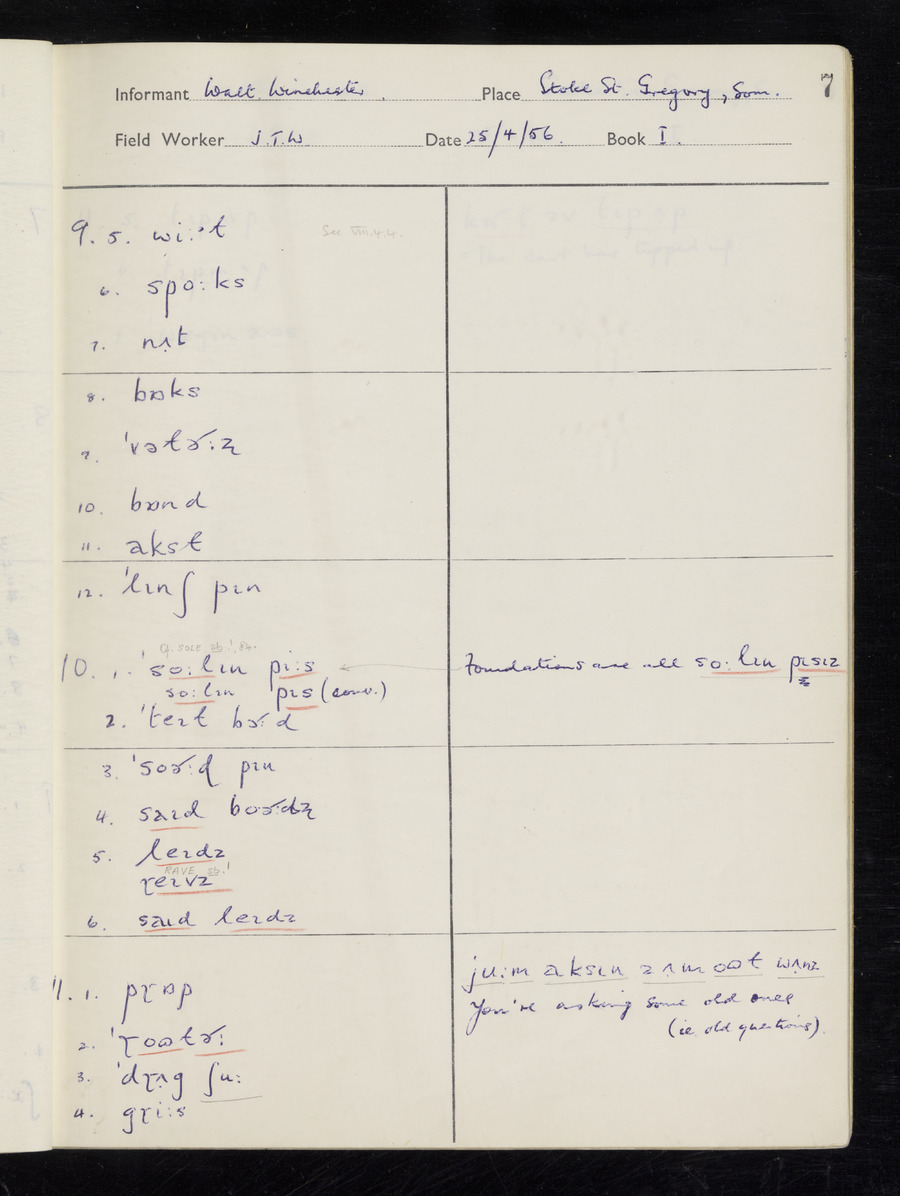 7
Informant Walt. Winchester. Place Stoke St. Gregory, Som.
Field Worker J.T.W Date 25/4/56. Book I.
9. 5. wiːᵊt See VIII.4.4.
6. spoːks
7. nʌt
8. bɒks
9. ˈvətɚːz̢
10. bɒnd
11. akst
12. ˈlɪnʃ pɪn
Cf. SOLE sb.¹, 8a.
10. 1. ˈsoːlɪn piːs Foundations are all soːlɪn pɪsɪz
soːlɪn pɪs (conv.)
2. ˈteɪt bɚːd
3. ˈsoɚːd pɪn
4. saɪd boɚːdz̢
5. leɪdz
RAVE sb.¹
ɽeɪvz
6. saɪd leɪdz
juːm aksɪn zʌm oɷt wʌnz
11. 1. pɽɒp
You're asking some old ones
(ie. old questions).
2. ˈɽoɷtɚː
3. ˈdɽʌg ʃuː
4. gɽiːs